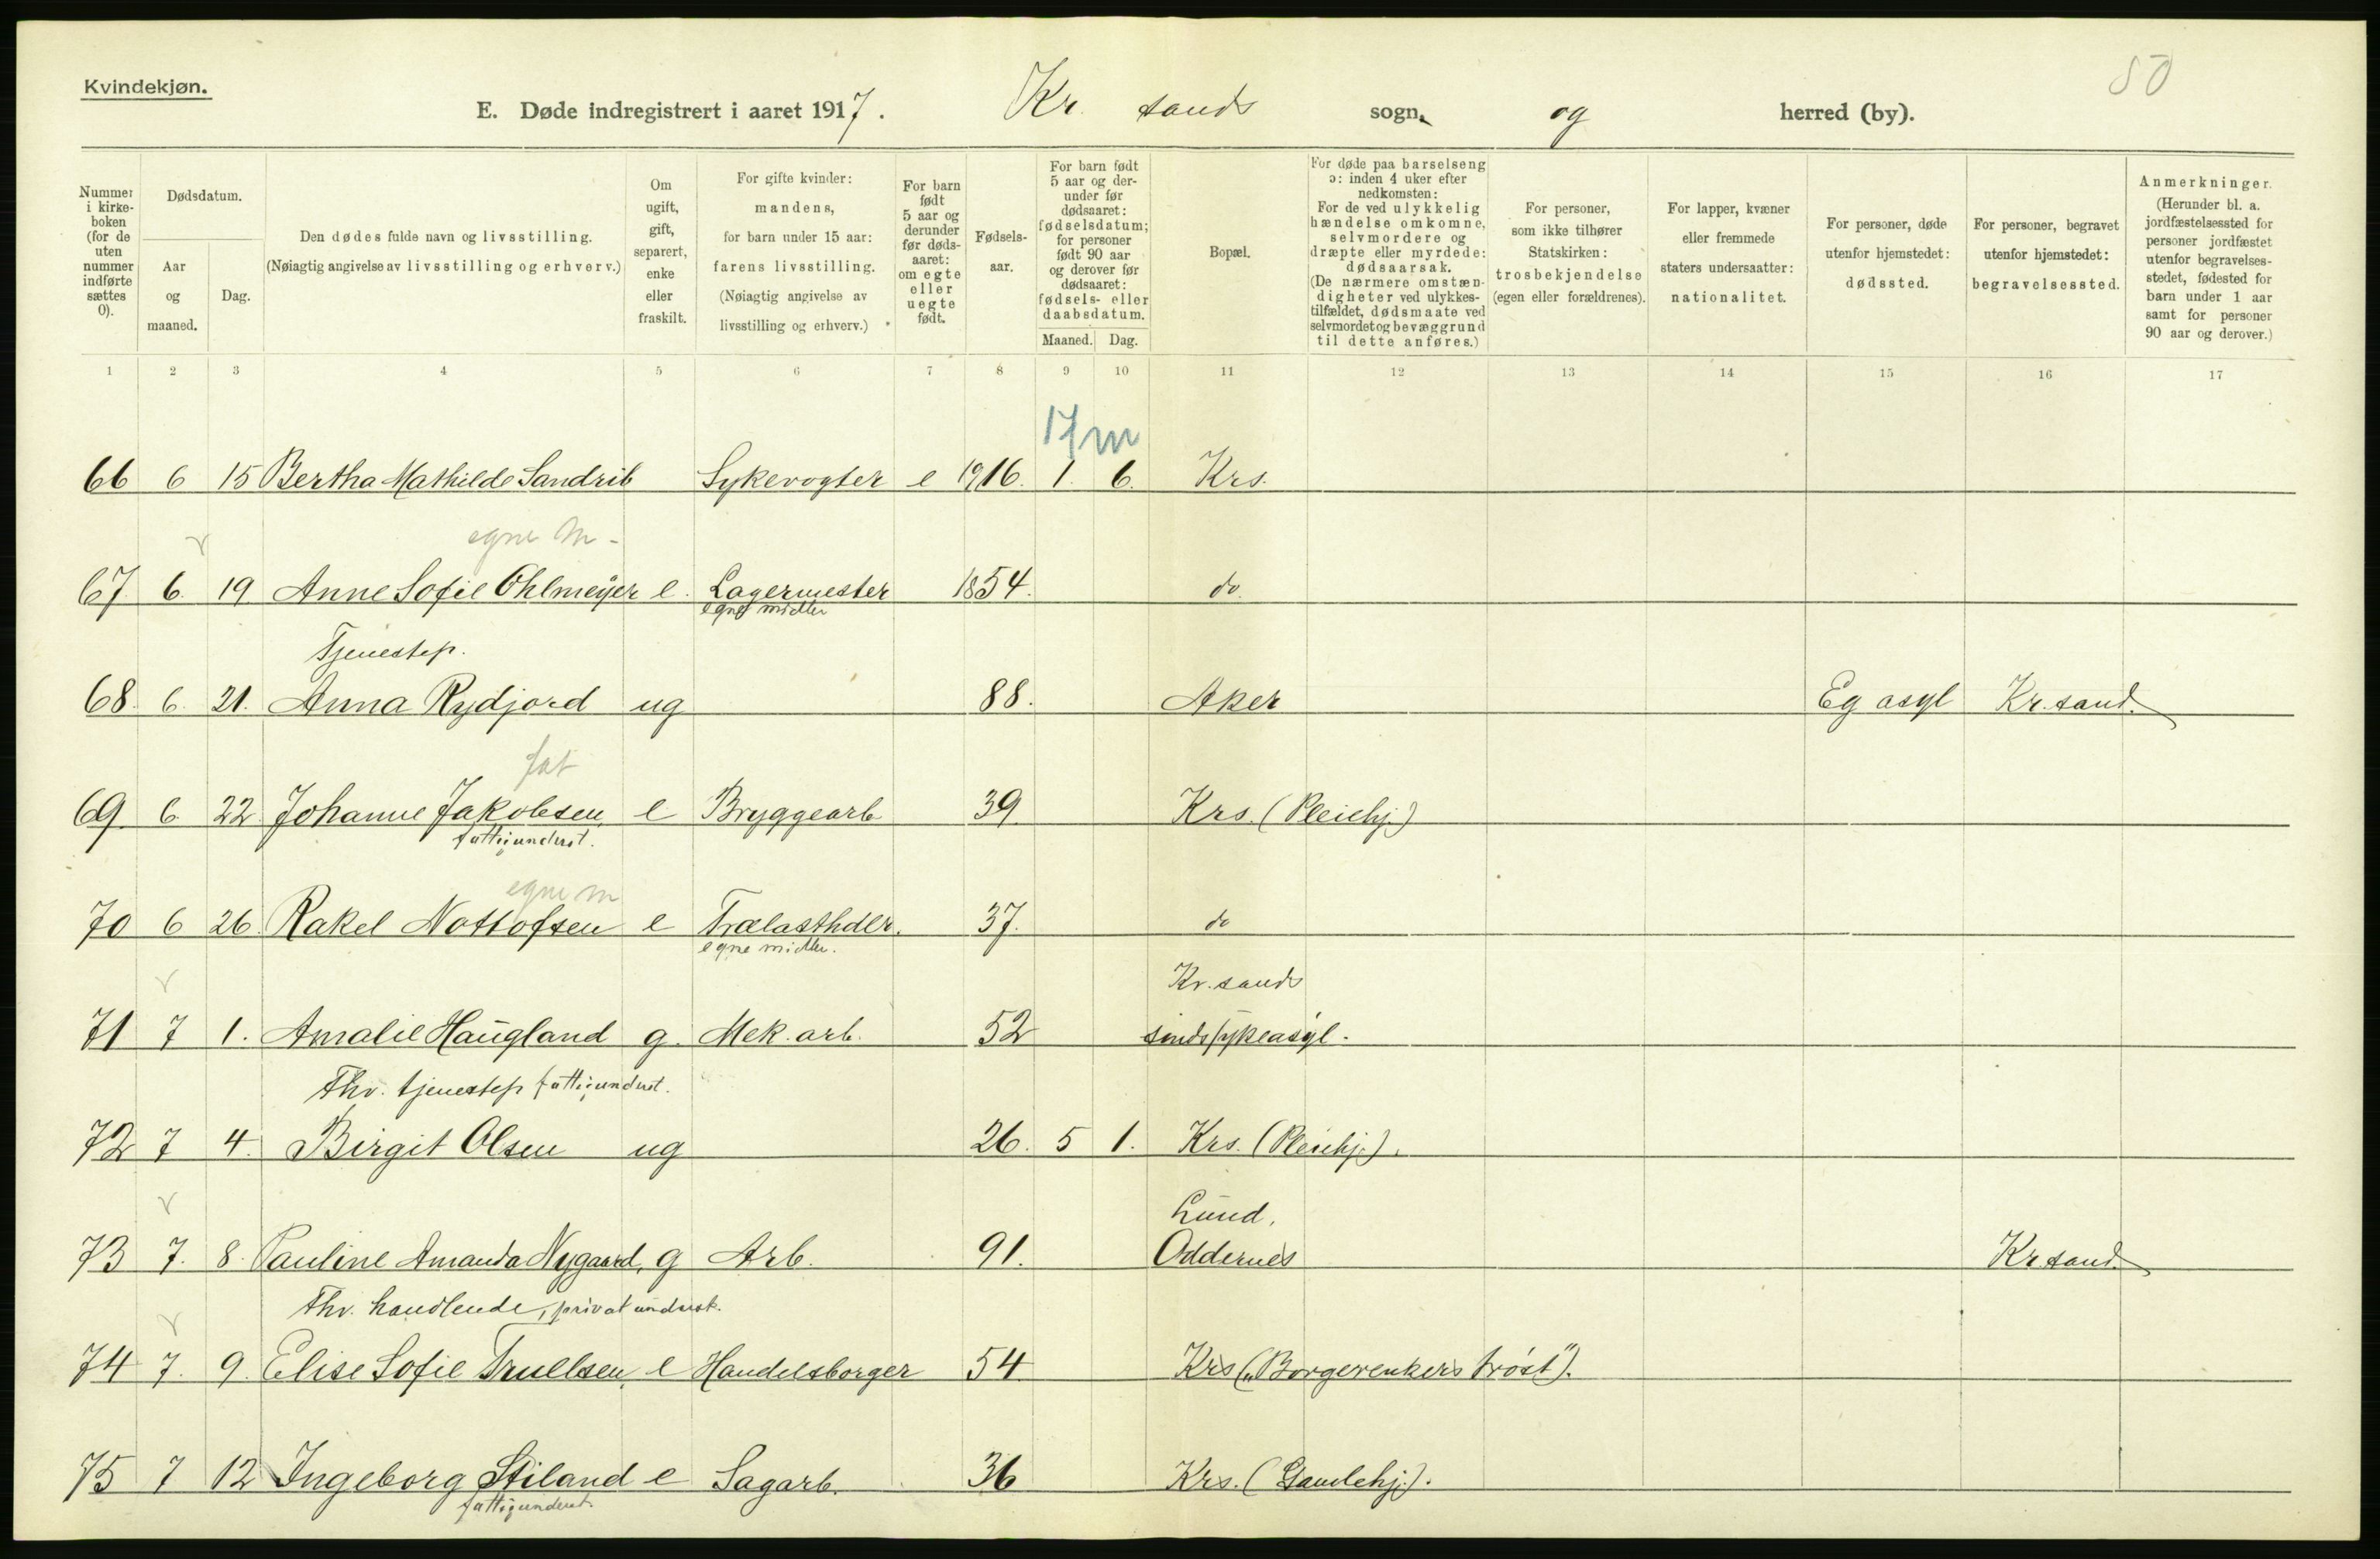 50
Kvindekjøn.
E. Døde indregistrert i aaret 1917. Kr. sands sogn, og herred (by).
Nummer i kirke-boken (for de uten nummer indførte sættes 0).
Dødsdatum.
Aar og maaned.
Dag.
Den dødes fulde navn og livsstilling.
(Nøiagtig angivelse av livsstilling og erhverv.)
Om ugift, gift, separert, enke eller fraskilt.
For gifte kvinder: mandens, for barn under 15 aar: farens livsstilling.
(Nøiagtig angivelse av livsstilling og erhverv.)
For barn født 5 aar og derunder før døds-aaret: om egte eller uegte født.
Fødsels-aar.
For barn født 5 aar og der-under før dødsaaret: fødselsdatum; for personer født 90 aar og derover før dødsaaret: fødsels- eller daabsdatum.
Maaned. Dag.
Bopæl.
For døde paa barselseng ɔ: inden 4 uker efter nedkomsten:
For de ved ulykkelig hændelse omkomne, selvmordere og dræpte eller myrdede: dødsaarsak.
(De nærmere omstæn-digheter ved ulykkes-tilfældet, dødsmaate ved selvmordet og bevæggrund til dette anføres.)
For personer, som ikke tilhører Statskirken: trosbekjendelse (egen eller forældrenes).
For lapper, kvæner eller fremmede staters undersaatter: nationalitet.
For personer, døde utenfor hjemstedet: dødssted.
For personer, begravet utenfor hjemstedet: begravelsessted.
Anmerkninger. (Herunder bl. a. jordfæstelsessted for personer jordfæstet utenfor begravelses-stedet, fødested for barn under 1 aar samt for personer 90 aar og derover.)
1 2 3 4 5 6 7 8 9 10 11 12 13 14 15 16 17
17 m
66 6 15 Bertha Mathilde Sandrib Sykevogter e 1916. 1. 6. Krs.
egne m -
67. 6. 19. Anne Sofie Ohlmeyer e. Lagermester 1854. do.
egne midler
Tjenestep.
68. 6. 21. Anna Rydjord ug 88. Aker Eg asyl Kr. sand.
fat
69. 6. 22. Johanne Jakobsen, e Bryggearb 39. Krs. (Pleiehj.)
fattigunderst.
egne m
70 6 26. Rakel Nottofsen e Trælasthdlr. 37. do
egne midler.
Kr. sands
71 7 1. Amalie Haugland g. Mek. arb. 52 sindssykeasyl.
Fhv. tjenestep fattigunderst.
72 7 4. Birgit Olsen ug 26. 5 1. Krs. (Pleiehj.).
Lund,
73 7. 8. Pauline Amanda Nygaard, g Arb. 91. Oddernes Kr. sand.
Fhv. handlende, privat underst.
74 7. 9. Elise Sofie Truelsen, e Handelsborger 54 Krs („Borgerenkers trøst").
75 7 12 Ingeborg Stiland e Sagarb. 36 Krs. (Gamlehj.).
fattigunderst.